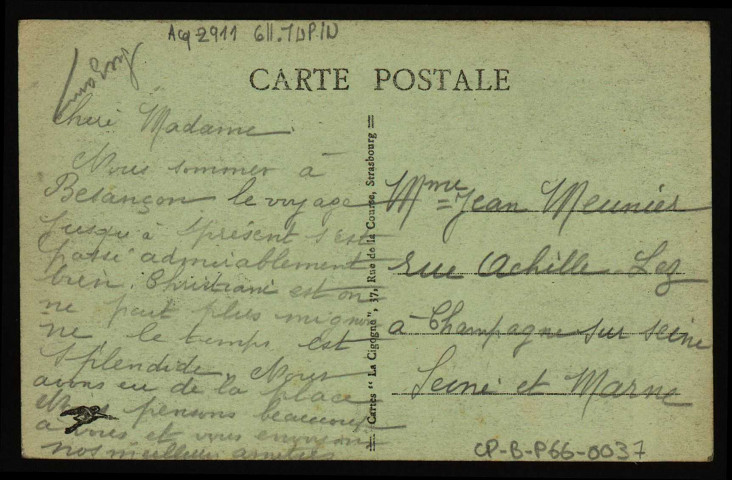 Acq 2911 Gll. TUPIN
CARTE POSTALE
Chere Madame
Nous sommes à
Besançon le voyage
jusqu'à présent s'est
passé admirablement
bien. Christiane est on
ne peut plus mignon
ne, le temps est
splendide. Nous
avons eu de la place
Nous pensons beaucoup
à vous et vous envoyons
nos meilleurs amitiés
Cartes "La Cigogne", 37, Rue de la Course, Strasbourg
Mme Jean Meunier
rue Achille Lez
à Champagne sur seine
Seine et Marne
CP-B-P66-0037